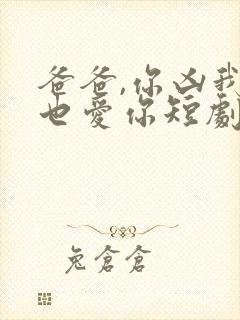 爸爸,你凶我
也愛你短劇
兔倉倉